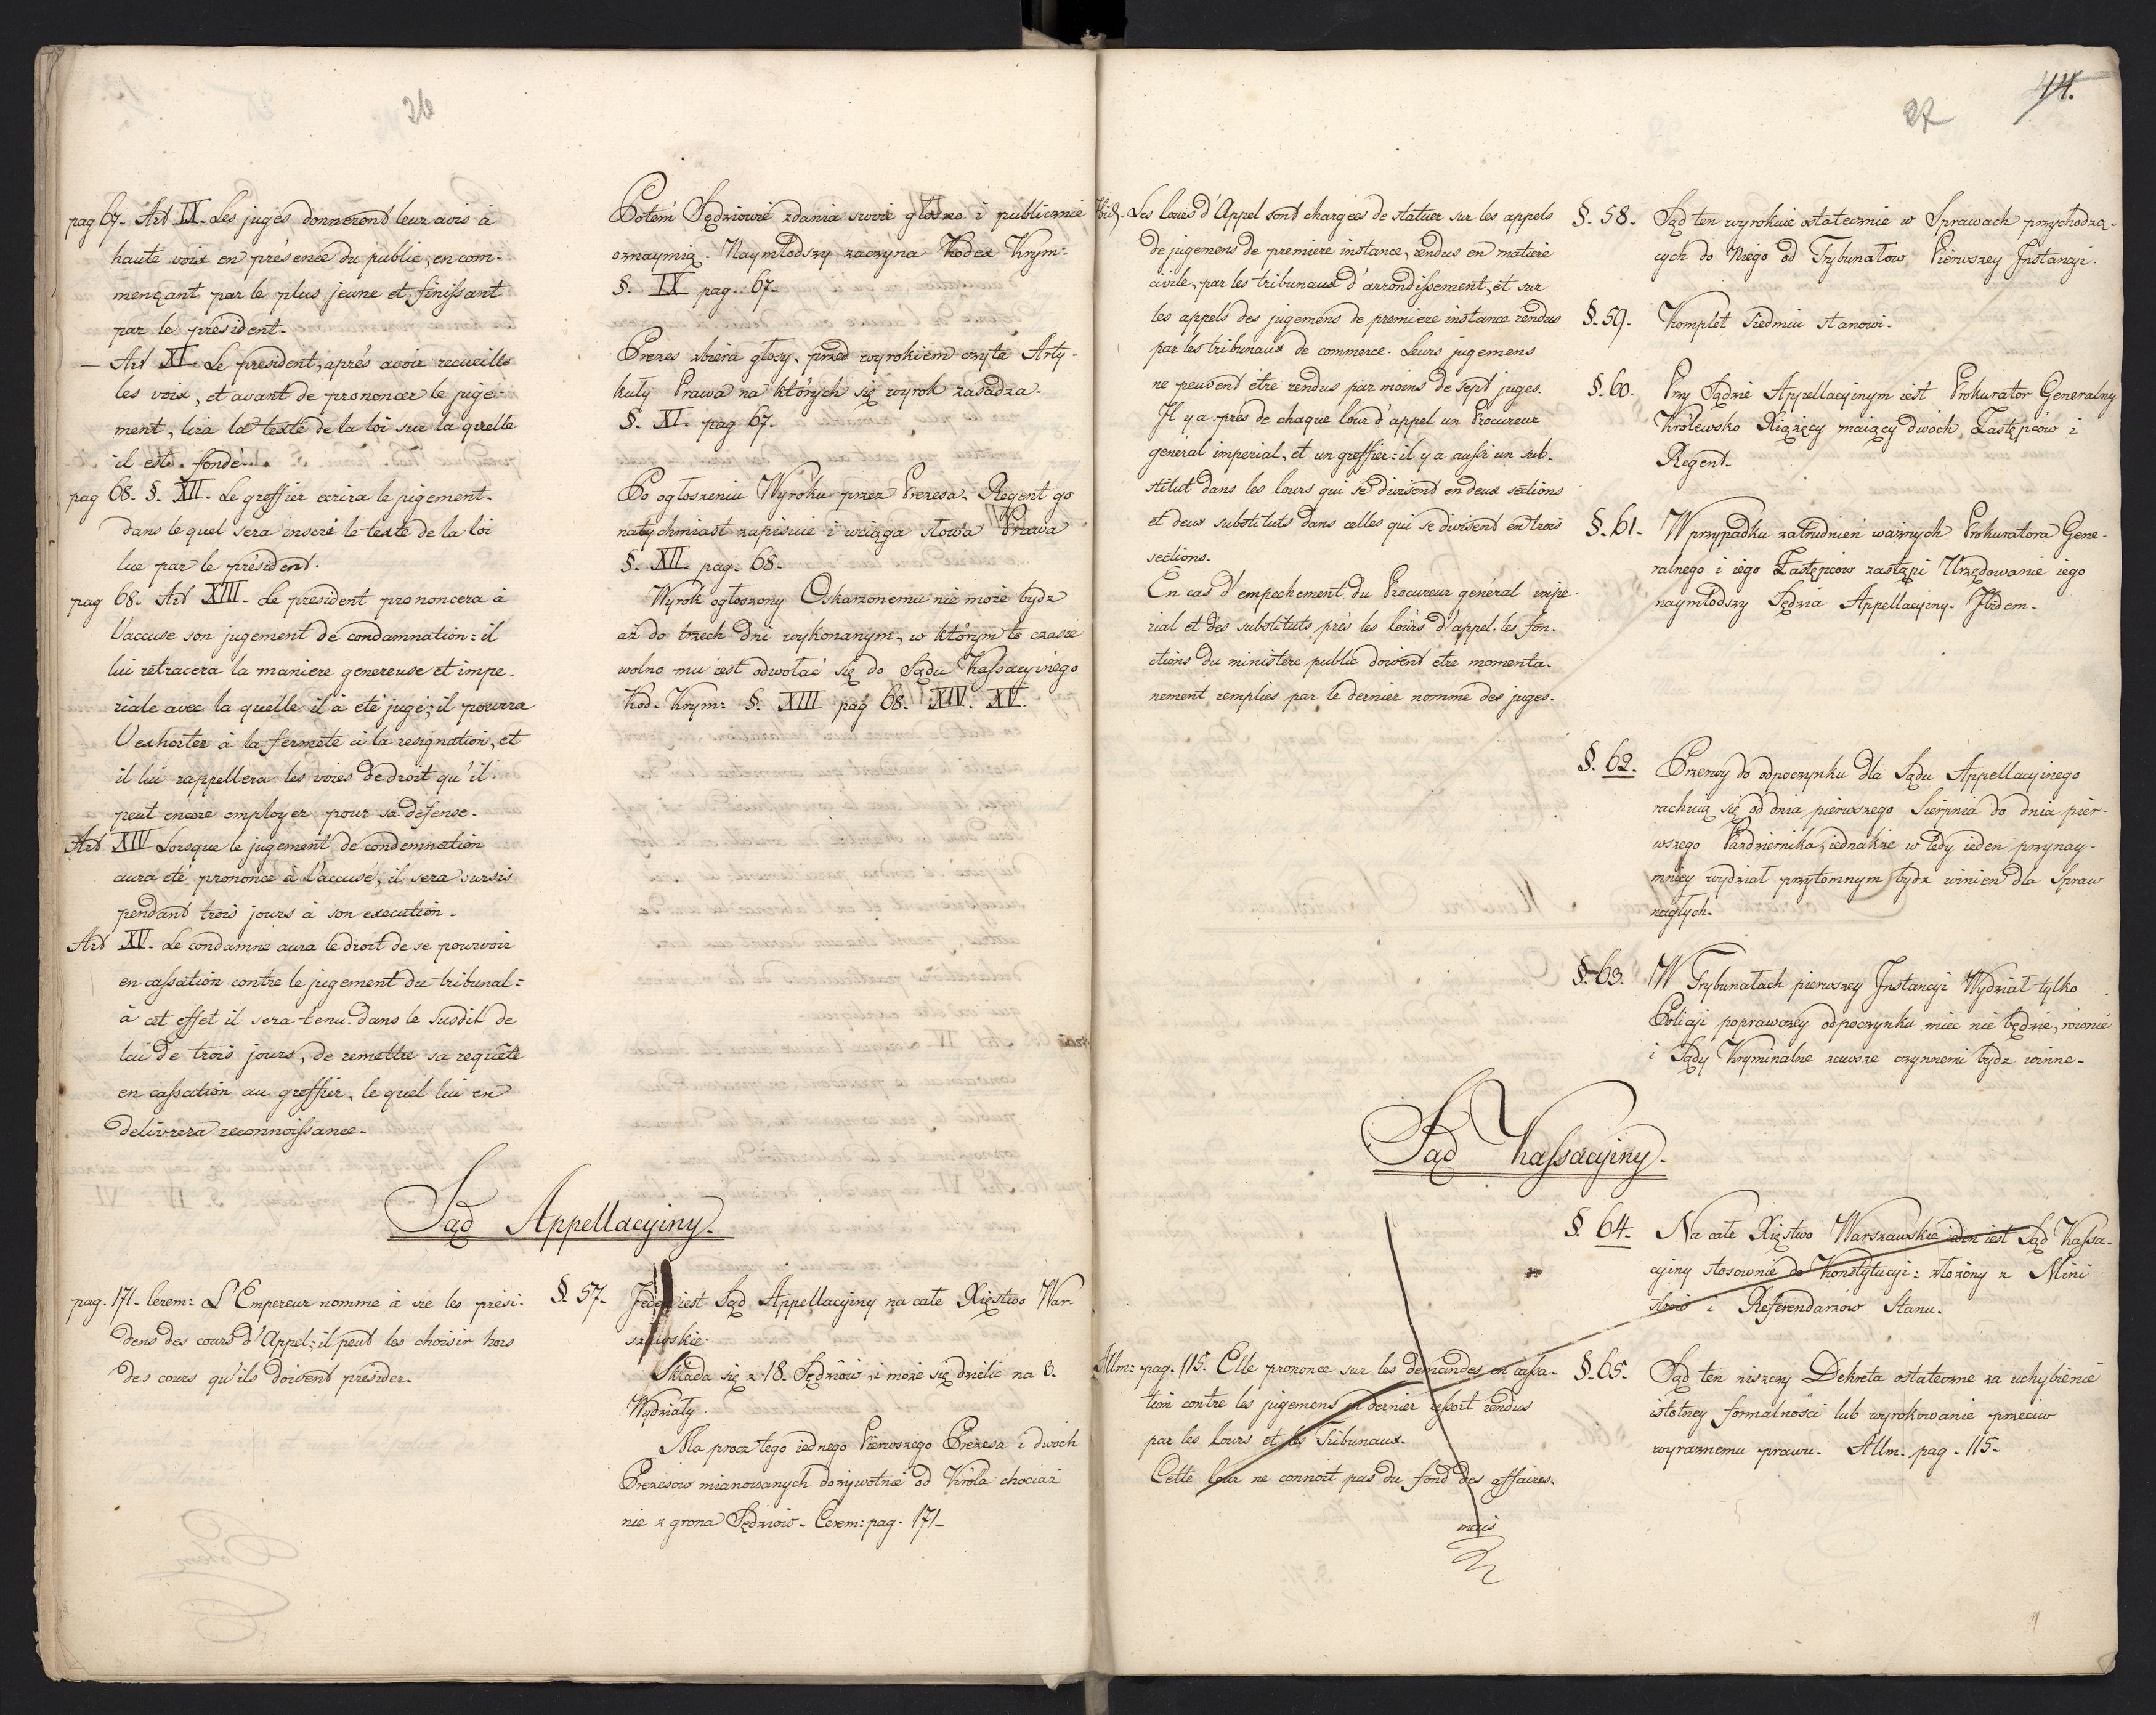 26
pag 67. Art IX. Les juges donnerond leur avis à
haute voix en présence du public, en com-
mençant par le plus jeune et finissant
par le président.
— Art XI. Le president, après avoir recueilli
les voix, et avant de prononcer le juge-
ment, lira le texte de la loi sur la quelle
il est fondé.
pag 68. §. XII. Le greffier ecrira le jugement.
dans le quel sera inseré le texte de la loi
lue par le président.
pag 68. Art XIII. Le president prononcera à
l'accuse son jugement de condamnation: il
lui retracera la maniere genereuse et impe-
riale avec la quelle il à eté jugé; il pourra
l'exhorter à la fermeté à la resignation, et
il lui rappellera les voies de droit qu'il
peut encore employer pour sa defense.
Art XIV Lorsque le jugement de condemnation
aura eté prononcé à l'accusé, il sera sursis
pendant trois jours à son execution.
Art XV. Le condamne aura le droit de se pourvoir
en cassation contre le jugement du tribunal:
à cet effet il sera tenu dans le susdit de
lai de trois jours, de remettre sa requête
en cassation au greffier, le quel lui en
delivrera reconnoissance.
Potem Sędziowie zdania swoie głośno i publicznie
oznaymią. Naymłodszy zaczyna Kodex Krym:
§. IX pag. 67.
Prezes zbiera głosy, przed wyrokiem czyta Arty-
kuły Prawa na których się wyrok zasadza.
§. XI. pag 67.
Po ogłoszeniu Wyroku przez Prezesa. Regent go
natychmiast zapisuie i wciąga słowa Prawa
§. XII. pag. 68.
Wyrok ogłoszony Oskarzonemu nie może bydz
aż do trzech dni wykonanym, w którym to czasie
wolno mu iest odwołać się do Sądu Kassacyinego
Kod. Krym: §. XIII pag 68. XIV. XV.
Sąd Appellacyiny.
pag. 171. Cerem: L'Empereur nomme à vie les presi-
dens des cours d'Appel; il peut les choisir hors
des cours qu'ils doivent presider.
§. 57. Jeden iest Sąd Appellacyiny na całe Xięstwo War-
szawskie.
Składa się z 18. Sędziów i może się dzielić na 3.
Wydziały.
Ma procz tego iednego Pierwszego Prezesa i dwoch
Prezesow mianowanych dożywotnie od Króla chociaż
nie z grona Sędziów. Cerem: pag. 171.
27
44.
Ibid. Les Cours d'Appel sond chargées de statuer sur les appels
de jugemens de premiere instance, rendus en matiere
civile, par les tribunaux d'arrondissement, et sur
les appels des jugemens de premiere instance rendus
par les tribunaux de commerce. Leurs jugemens
ne peuvend etre rendus par moins de sept juges.
Il y a près de chaque Cour d'appel un Procureur
general imperial, et un greffier: il y a aussi un sub-
stitut dans les Cours qui se divisend en deux sections
et deux substituts dans celles qui se divisend en trois
sections.
En cas d'empechement du Procureur general impe-
rial et des substituts près les Cours d'appel. les fon-
ctions du ministere public doivend etre momenta-
nement remplies par le dernier nommé des juges.
§. 58. Sąd ten wyrokuie ostatecznie w Sprawach przychodzą-
cych do Niego od Trybunałow Pierwszey Jnstancyi.
§. 59. Komplet siedmiu stanowi.
§. 60. Przy Sądzie Appellacyinym iest Prokurator Generalny
Królewsko Xiążęcy maiący dwóch Zastępców i
Regent.
§. 61. W przypadku zatrudnień ważnych Prokuratora Gene-
ralnego i iego Zastępcow zastąpi Urzędowanie iego
naymłodszy Sędzia Appellacyiny. Jbidem.
§. 62. Przerwy do odpoczynku dla Sądu Appellacyinego
rachuią się od dnia pierwszego Sierpnia do dnia pier-
wszego Pazdziernika, iednakże w tedy ieden przynay-
mniey wydział przytomnym bydz winien dla Spraw
nagłych.
§. 63. W Trybunałach pierwszey Jnstancyi Wydział tylko
Policyi poprawczey odpoczynku miec nie będzie, rownie
i Sądy Kryminalne zawsze czynnemi bydz winne.
Sąd Kassacyiny.
§. 64. Na całe Xięstwo Warszawskie ieden iest Sąd Kassa-
cyiny stosownie do Konstytucyi: złożony z Mini
strow i Referendarzow Stanu.
Allm: pag. 115. Elle prononce sur les demandes en cassa-
tion contre les jugemens en dernier ressort rendus
par les Cours et les Tribunaux.
Cette Cour ne connoit pas du fond des affaires.
mais
§. 65. Sąd ten niszczy Dekreta ostateczne za uchybienie
istotney formalności lub wyrokowanie przeciw
wyraznemu prawu. Allm. pag. 115.